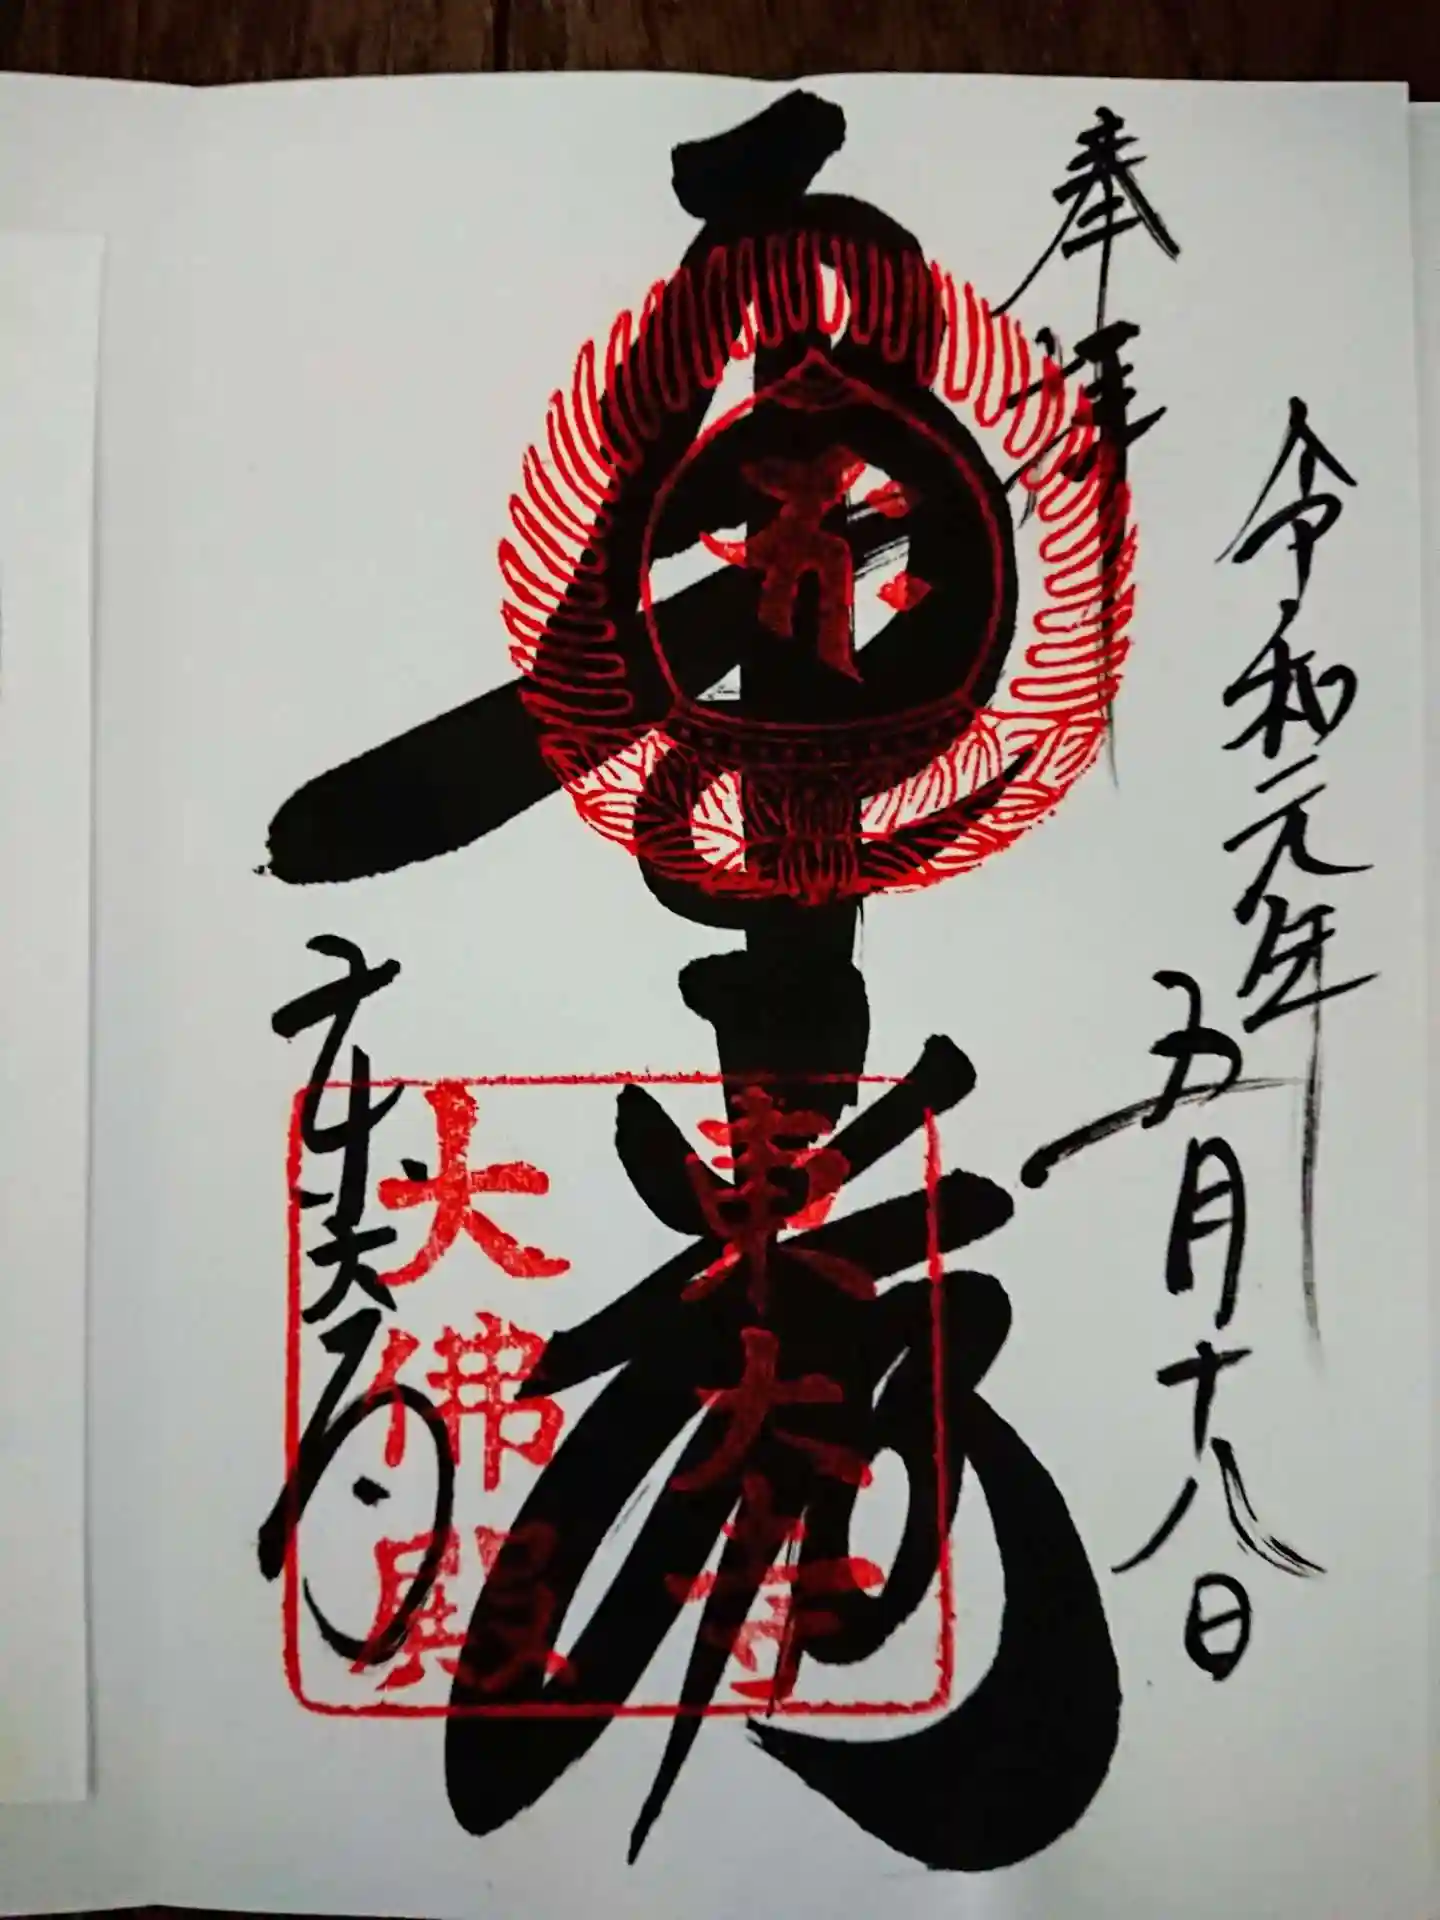 奉拝
令和元年
五月十八日
華厳
東大寺
大佛殿
東大寺